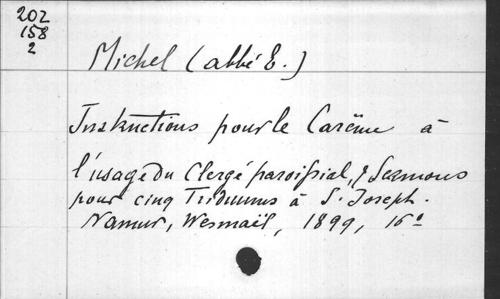 202
158
2
Michel (abbé E.)
Instructions pour le Carême à
l'usage du Clergé paroissial, & Sermons
pour cinq Triduums à S. Joseph.
Namur, Wesmaël, 1899, 16°